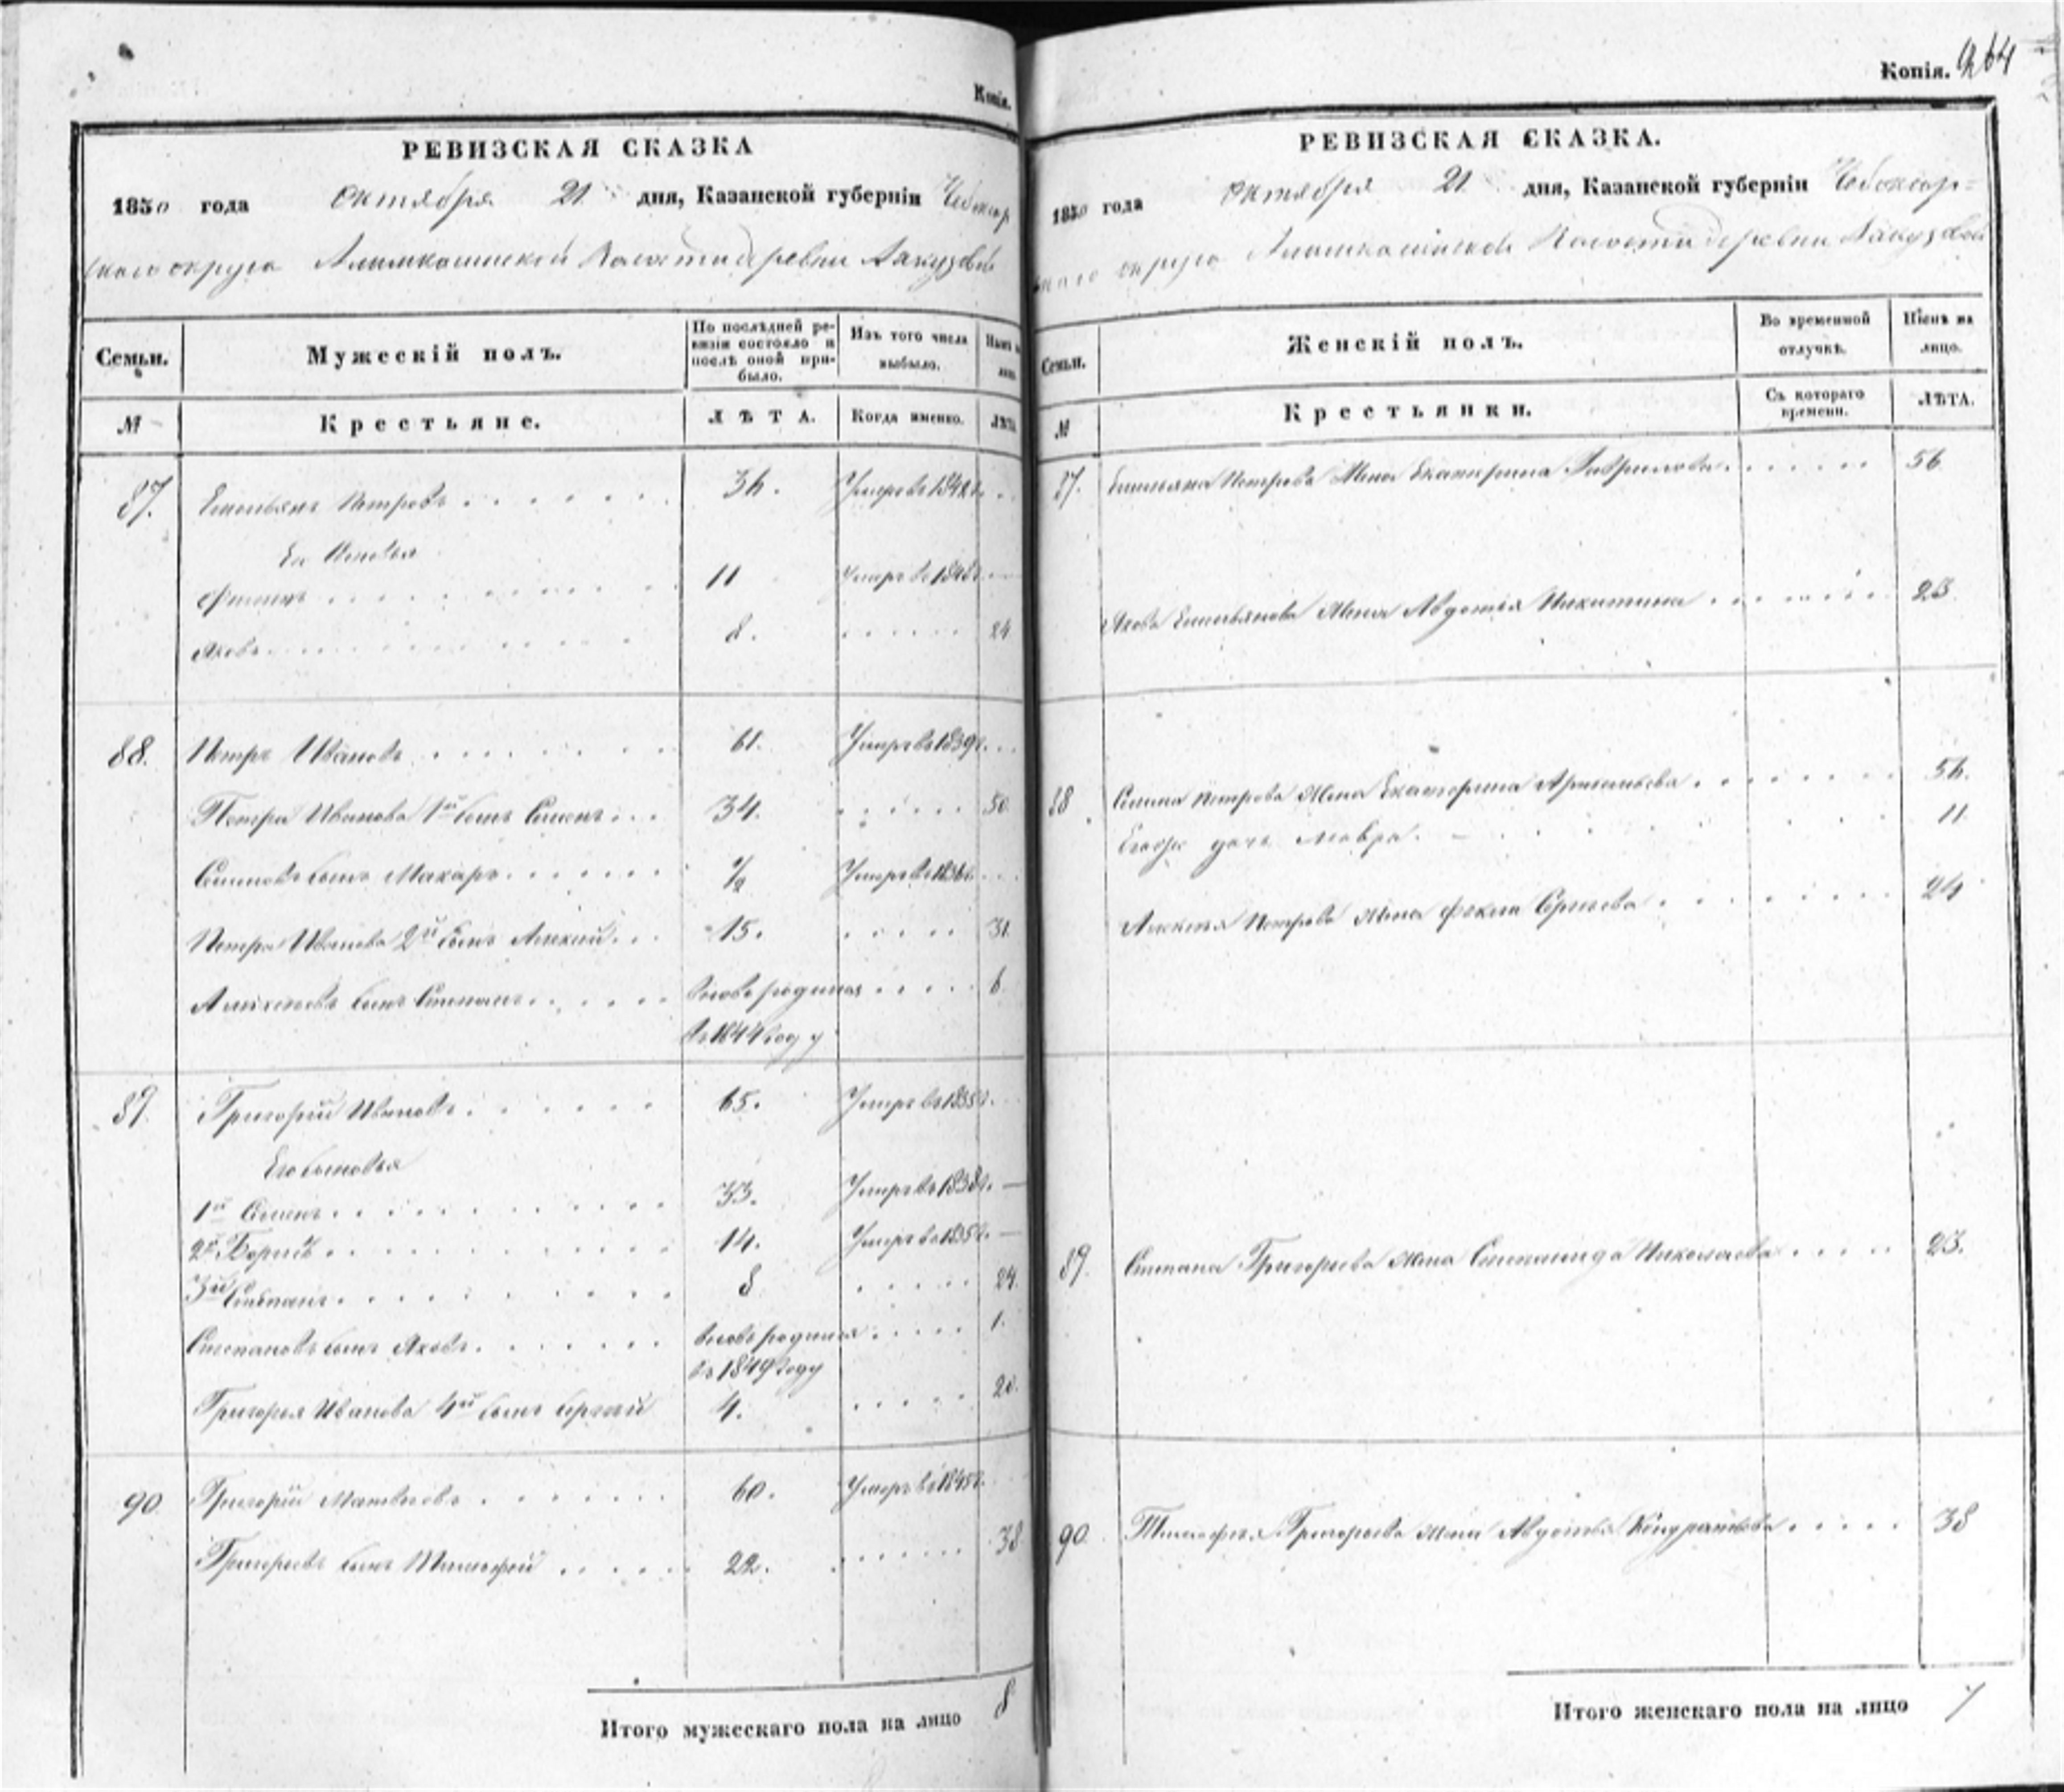 Копія.
РЕВИЗСКАЯ СКАЗКА
1850 года октября 21 дня, Казанской губерніи Чебоксар
скаго округа Волости деревни
Семьи.
Мужескій полъ.
По послѣдней ре-
визіи состояло и
послѣ оной при-
было.
Изъ того числа
выбыло.
№
Крестьяне.
ЛѢТА.
Когда именно.
ЛѢТА
87. Емельянъ Петровъ 34. Умеръ въ
Его Сыновья
Филипъ 11 Умеръ въ
Яковъ 8. 24
88. Петръ Ивановъ 61. Умеръ въ 1839г.
Петра Иванова 1й сынъ Семенъ 34. 50
Семеновъ сынъ Макаръ 1/2 Умеръ въ 1836г.
Петра Иванова 2й сынъ Алексей 15. 31
Алексеевъ сынъ Степанъ вновь родился 6
въ 1844 году
89. Григорій Ивановъ 65. Умеръ въ 1835г.
Его сыновья
1й Семенъ 33. Умеръ въ 1838г. —
2й Борисъ 14. Умеръ въ 1835г. —
3й Степанъ 8 24.
Степановъ сынъ Яковъ вновь родился 1.
въ 1849 году
Григорья Иванова 4й сынъ Сергей 4. 20.
90 Григорій Матвеевъ 60. Умеръ въ 1845г.
Григорьевъ сынъ Тимофей 22. 38
Итого мужескаго пола на лицо 8
Копія. 264
РЕВИЗСКАЯ СКАЗКА.
1850 года октября 21 дня, Казанской губерніи Чебоксар=
скаго округа Волости деревни
Семьи.
Женскій полъ.
Во временной
отлучкѣ.
Нынѣ на
лицо.
№
Крестьянки.
Съ котораго
времени.
ЛѢТА.
87. Емельяна Петрова Жена Екатерина Гаврилова 56
Якова Емельянова Жена Авдотья Никитина 23.
88 Семена Петрова Жена Екатерина Артемьева 54.
Егоже дочь Мавра 11
Алексея Петрова Жена Фекла Сергеева 24
89. Степана Григорьева Жена Степанида Николаева 23.
90 Тимофея Григорьева Жена Авдотья Кондратьева 38
Итого женскаго пола на лицо 7